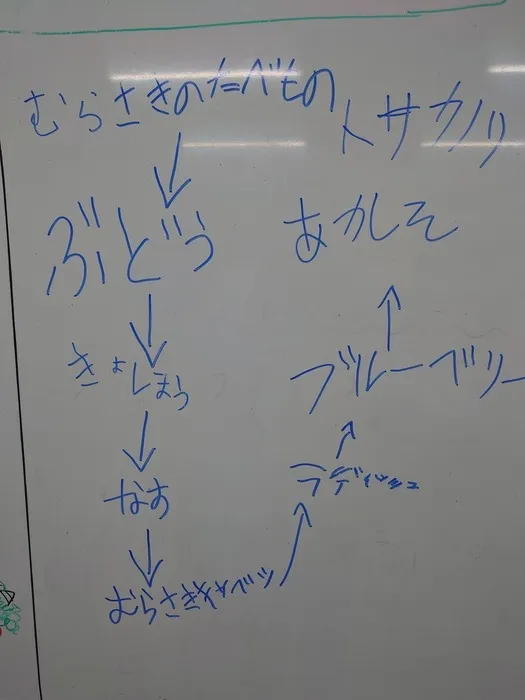 むらさきのたべもの
ぶどう
きょほう
なす
むらさきキャベツ
ラディッシュ
ブルーベリー
あかしそ
トサカノリ